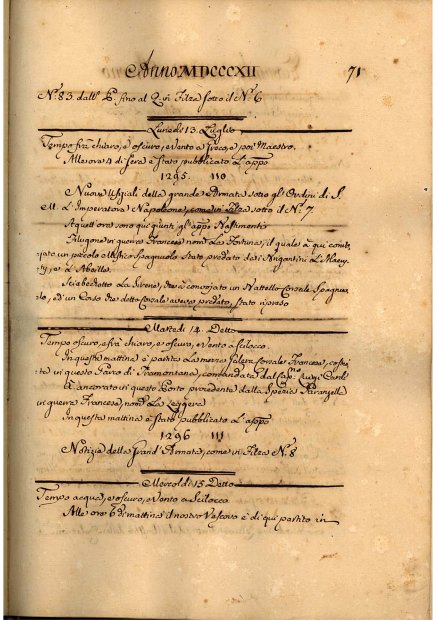 Anno MDCCCXII 71
N.° 83. dall' P. fino al Q. in Filza sotto il N.° 6
Lunedi 13. Luglio
Tempo frà chiaro, e oscuro, e Vento a Greco, e poi Maestro.
Alle ora 4 di sera è stato pubblicato L'appo
1295. 110
Nuove Uffiziali della grande Armata sotto gl'Ordini di S.
M. L'Imperatore Napoleone, come in Filza sotto il N.° 7.
A quest'ora sono qui giunti gl'appo Bastimenti
Filugone in guerra Francese nom.° La Fortuna, il quale à qui
jato un piccolo Spagnuolo stato predato da i
Sciabecchotto La Sirena, che à convojato un Battello Corsale Spagnuo
lo, ed un Caso che detto Corsale aveva predato, stato ripreso
Martedi 14. Detto
Tempo oscuro, e frà chiaro, e oscuro, e Vento a Scilocco.
In questa mattina è partita La mezza Galera Corsale Francese, costrui
ta in questo Parco di Tramontana, comandata dal Cap.no Luigi
À ancorato in questo Porto procedente dalla Spezie Paranzella
in guerra Francese, nom.° La Leggera
In questa mattina è stato pubblicato L'appo
1296 111
Notizie della Grand'Armata, come in Filza N.° 8
Mercoldi 15. Detto
Tempo acqua, e oscuro, e Vento a Scilocco
Alle ore 6 di mattina il nostro Vescovo è di qui partito in